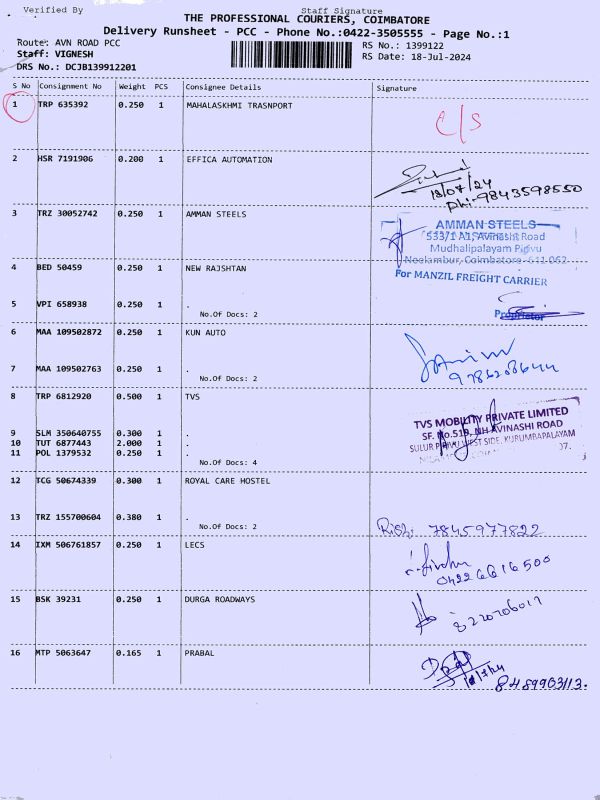 Verified By Staff Signature
THE PROFESSIONAL COURIERS, COIMBATORE
Delivery Runsheet - PCC - Phone No.:0422-3505555 - Page No.:1
Route: AVN ROAD PCC RS No.: 1399122
Staff: VIGNESH RS Date: 18-Jul-2024
DRS No.: DCJB139912201
S No Consignment No Weight PCS Consignee Details Signature
1 TRP 635392 0.250 1 MAHALASKHMI TRASNPORT
C/S
2 HSR 7191906 0.200 1 EFFICA AUTOMATION
18/07/24
Ph:-9843598550
3 TRZ 30052742 0.250 1 AMMAN STEELS
AMMAN STEELS
533/1 A1, Avinashi Road
Mudhalipalayam Pirivu
Neelambur, Coimbatore- 641 062
4 BED 50459 0.250 1 NEW RAJSHTAN
For MANZIL FREIGHT CARRIER
5 VPI 658938 0.250 1 .
No.Of Docs: 2
Proprietor
6 MAA 109502872 0.250 1 KUN AUTO
7 MAA 109502763 0.250 1 .
No.Of Docs: 2
8 TRP 6812920 0.500 1 TVS
TVS MOBILITY PRIVATE LIMITED
SF. No.519, NH AVINASHI ROAD
SULUR PIRIVU WEST SIDE, KURUMBAPALAYAM
07.
9 SLM 350640755 0.300 1 .
10 TUT 6877443 2.000 1 .
11 POL 1379532 0.250 1 .
No.Of Docs: 4
12 TCG 50674339 0.300 1 ROYAL CARE HOSTEL
13 TRZ 155700604 0.380 1 .
No.Of Docs: 2
7845977822
14 IXM 506761857 0.250 1 LECS
0422 6616500
15 BSK 39231 0.250 1 DURGA ROADWAYS
8220706017
16 MTP 5063647 0.165 1 PRABAL
8489903113.